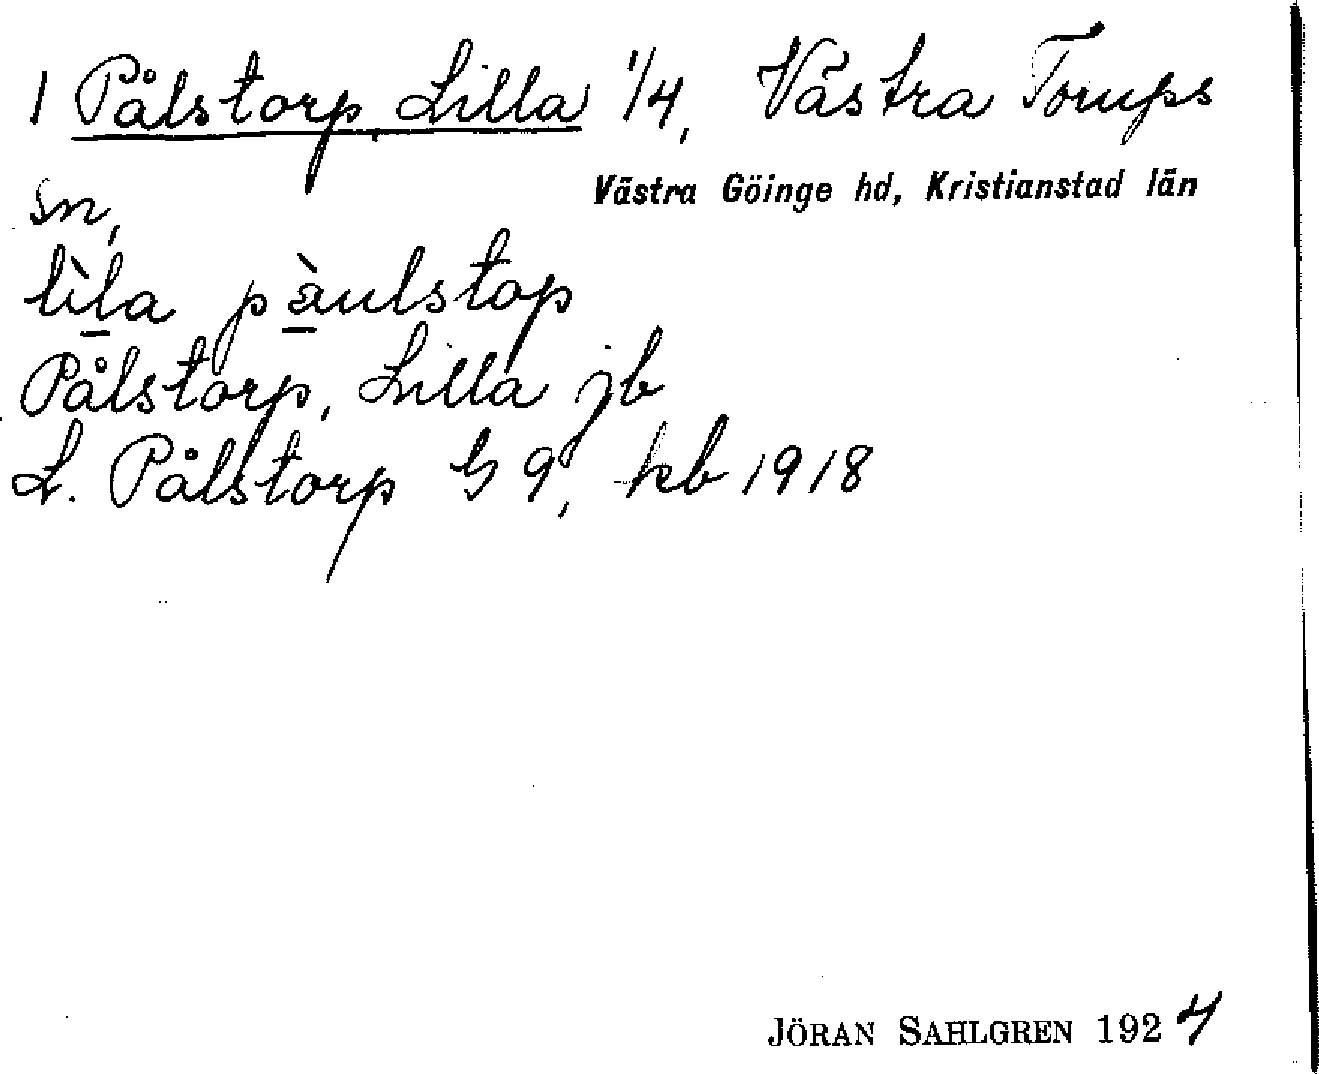 1 Pålstorp, Lilla 1/4, Västra Torups
sn,
Västra Göinge hd, Kristianstad län
lìla pàulstap
Pålstorp, Lilla jb
L. Pålstorp G 9, kb 1918
JÖRAN SAHLGREN 1924